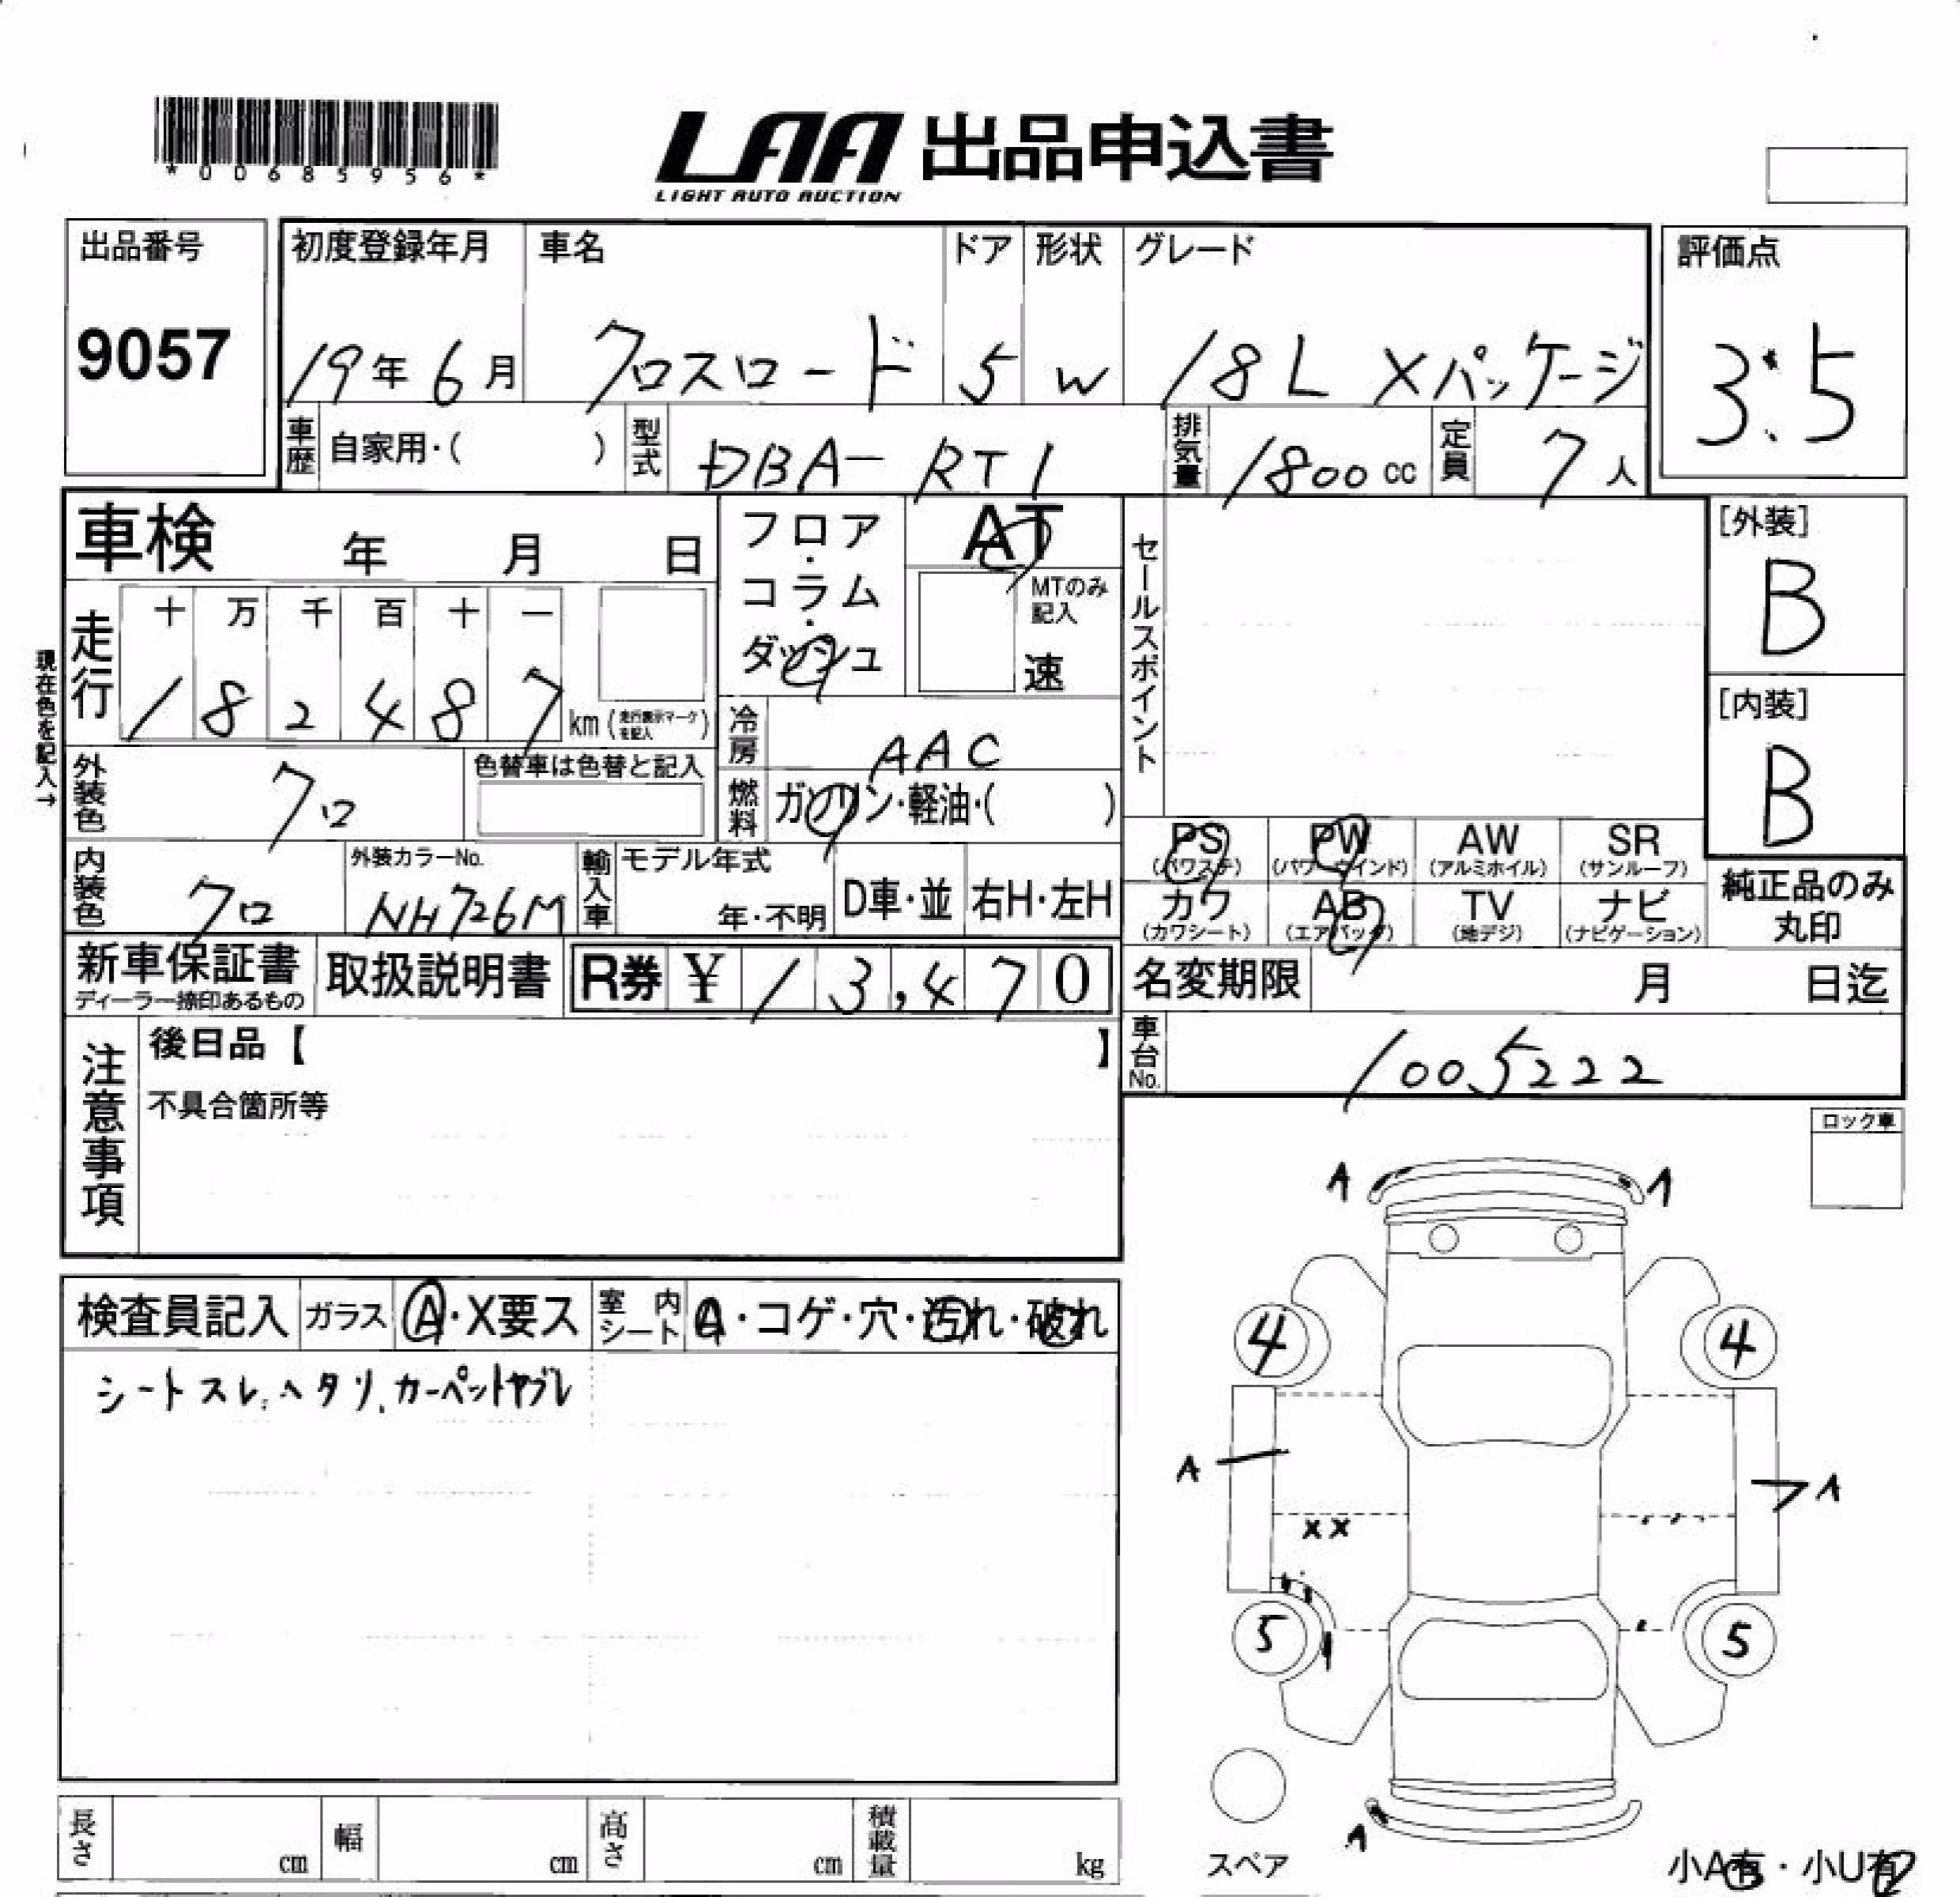 *00685956*
LAA 出品申込書
LIGHT AUTO AUCTION
出品番号 初度登録年月 車名 ドア 形状 グレード 評価点
9057 19年 6月 クロスロード 5 W 18L Xパッケージ 3.5
車歴 自家用・( ) 型式 DBA-RT1 排気量 1800cc 定員 7人
車検 年 月 日 フロア・コラム・ダッシュ AT セールスポイント [外装]
B
MTのみ記入
速
走行 十 万 千 百 十 一
1 8 2 4 8 7 km (走行表示マークを記入)
現在色を記入→
冷房 AAC
[内装]
B
外装色 クロ 色替車は色替と記入 燃料 ガソリン・軽油・( )
PS PW AW SR
(パワステ) (パワーウインド) (アルミホイル) (サンルーフ)
内装色 クロ 外装カラーNo. NH726M 輸入車 モデル年式 年・不明 D車・並 右H・左H
カワ AB TV ナビ
(カワシート) (エアバッグ) (地デジ) (ナビゲーション)
純正品のみ
丸印
新車保証書 取扱説明書 R券 ¥ 13,470 名変期限 月 日迄
ディーラー捺印あるもの
注意事項 後日品【 】 車台No. 1005222
不具合箇所等
ロック車
A A
検査員記入 ガラス A・X要ス 室内シート A・コゲ・穴・汚れ・破れ
シートスレ、ヘタリ、カーペットヤブレ
4 4
A A
X X
5 5
A
スペア 小A有・小U有
長さ cm 幅 cm 高さ cm 積載量 kg